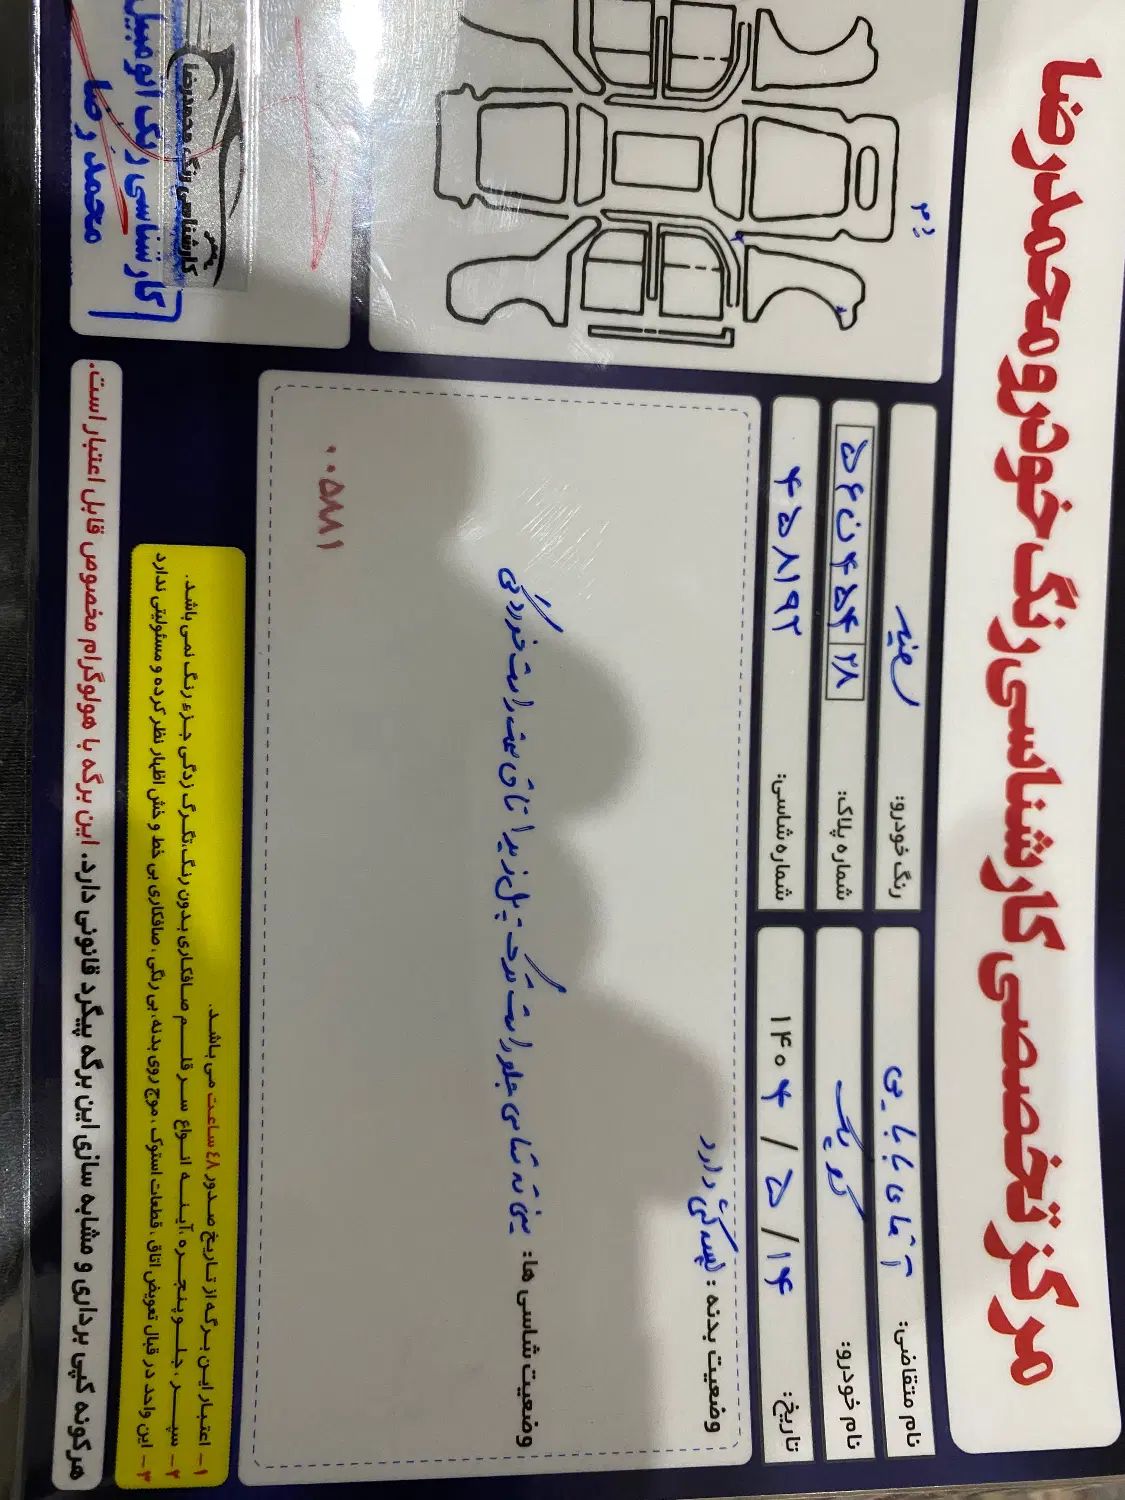 مرکز تخصصی کارشناسی رنگ خودرو محمدرضا
نام متقاضی: آقای بابایی
رنگ خودرو: سفید
نام خودرو: کوییک
شماره پلاک: ۵۴ ن ۴۵۴ ۲۸
تاریخ: ۱۴۰۴/۵/۱۴
شماره شاسی: ۴۵۸۱۹۲
وضعیت بدنه: لیسه گیری دارد
وضعیت شاسی ها: سینی ته شاسی جلو راست ترک پل زیر اتاق سمت راست خوردگی
۰۰۵۸۸۱
۱- اعتبار این برگه از تاریخ صدور ۴۸ ساعت می باشد.
۲- سپر، جلو پنجره، آینه انواع سر قلم صافکاری بدون رنگ، تگرگ زدگی جزء رنگ نمی باشد.
۳- این واحد در قبال تعویض اتاق، قطعات استوک، موج روی بدنه، بی رنگی، صافکاری بی خط و خش اظهار نظر کرده و مسئولیتی ندارد
هرگونه کپی برداری و مشابه سازی این برگه پیگرد قانونی دارد. این برگه با هولوگرام مخصوص قابل اعتبار است.
کارشناسی رنگ محمدرضا
کارشناسی رنگ اتومبیل
محمد رضا